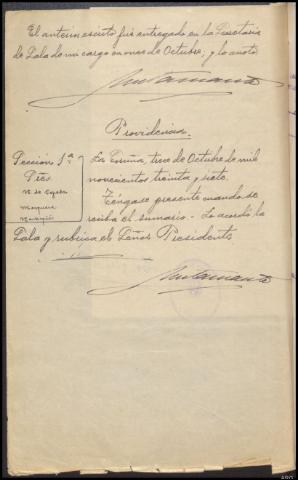 El anterior escrito fue entregado en la Secretaria
de Sala de mi cargo en once de Octubre; y lo anoto
Providencia.
Sección 1ª
Sres
La Coruña, trece de Octubre de mil
novecientos treinta y siete.
Téngase presente cuando se
reciba el sumario.- Lo acordó la
Sala y rubrica el Señor Presidente